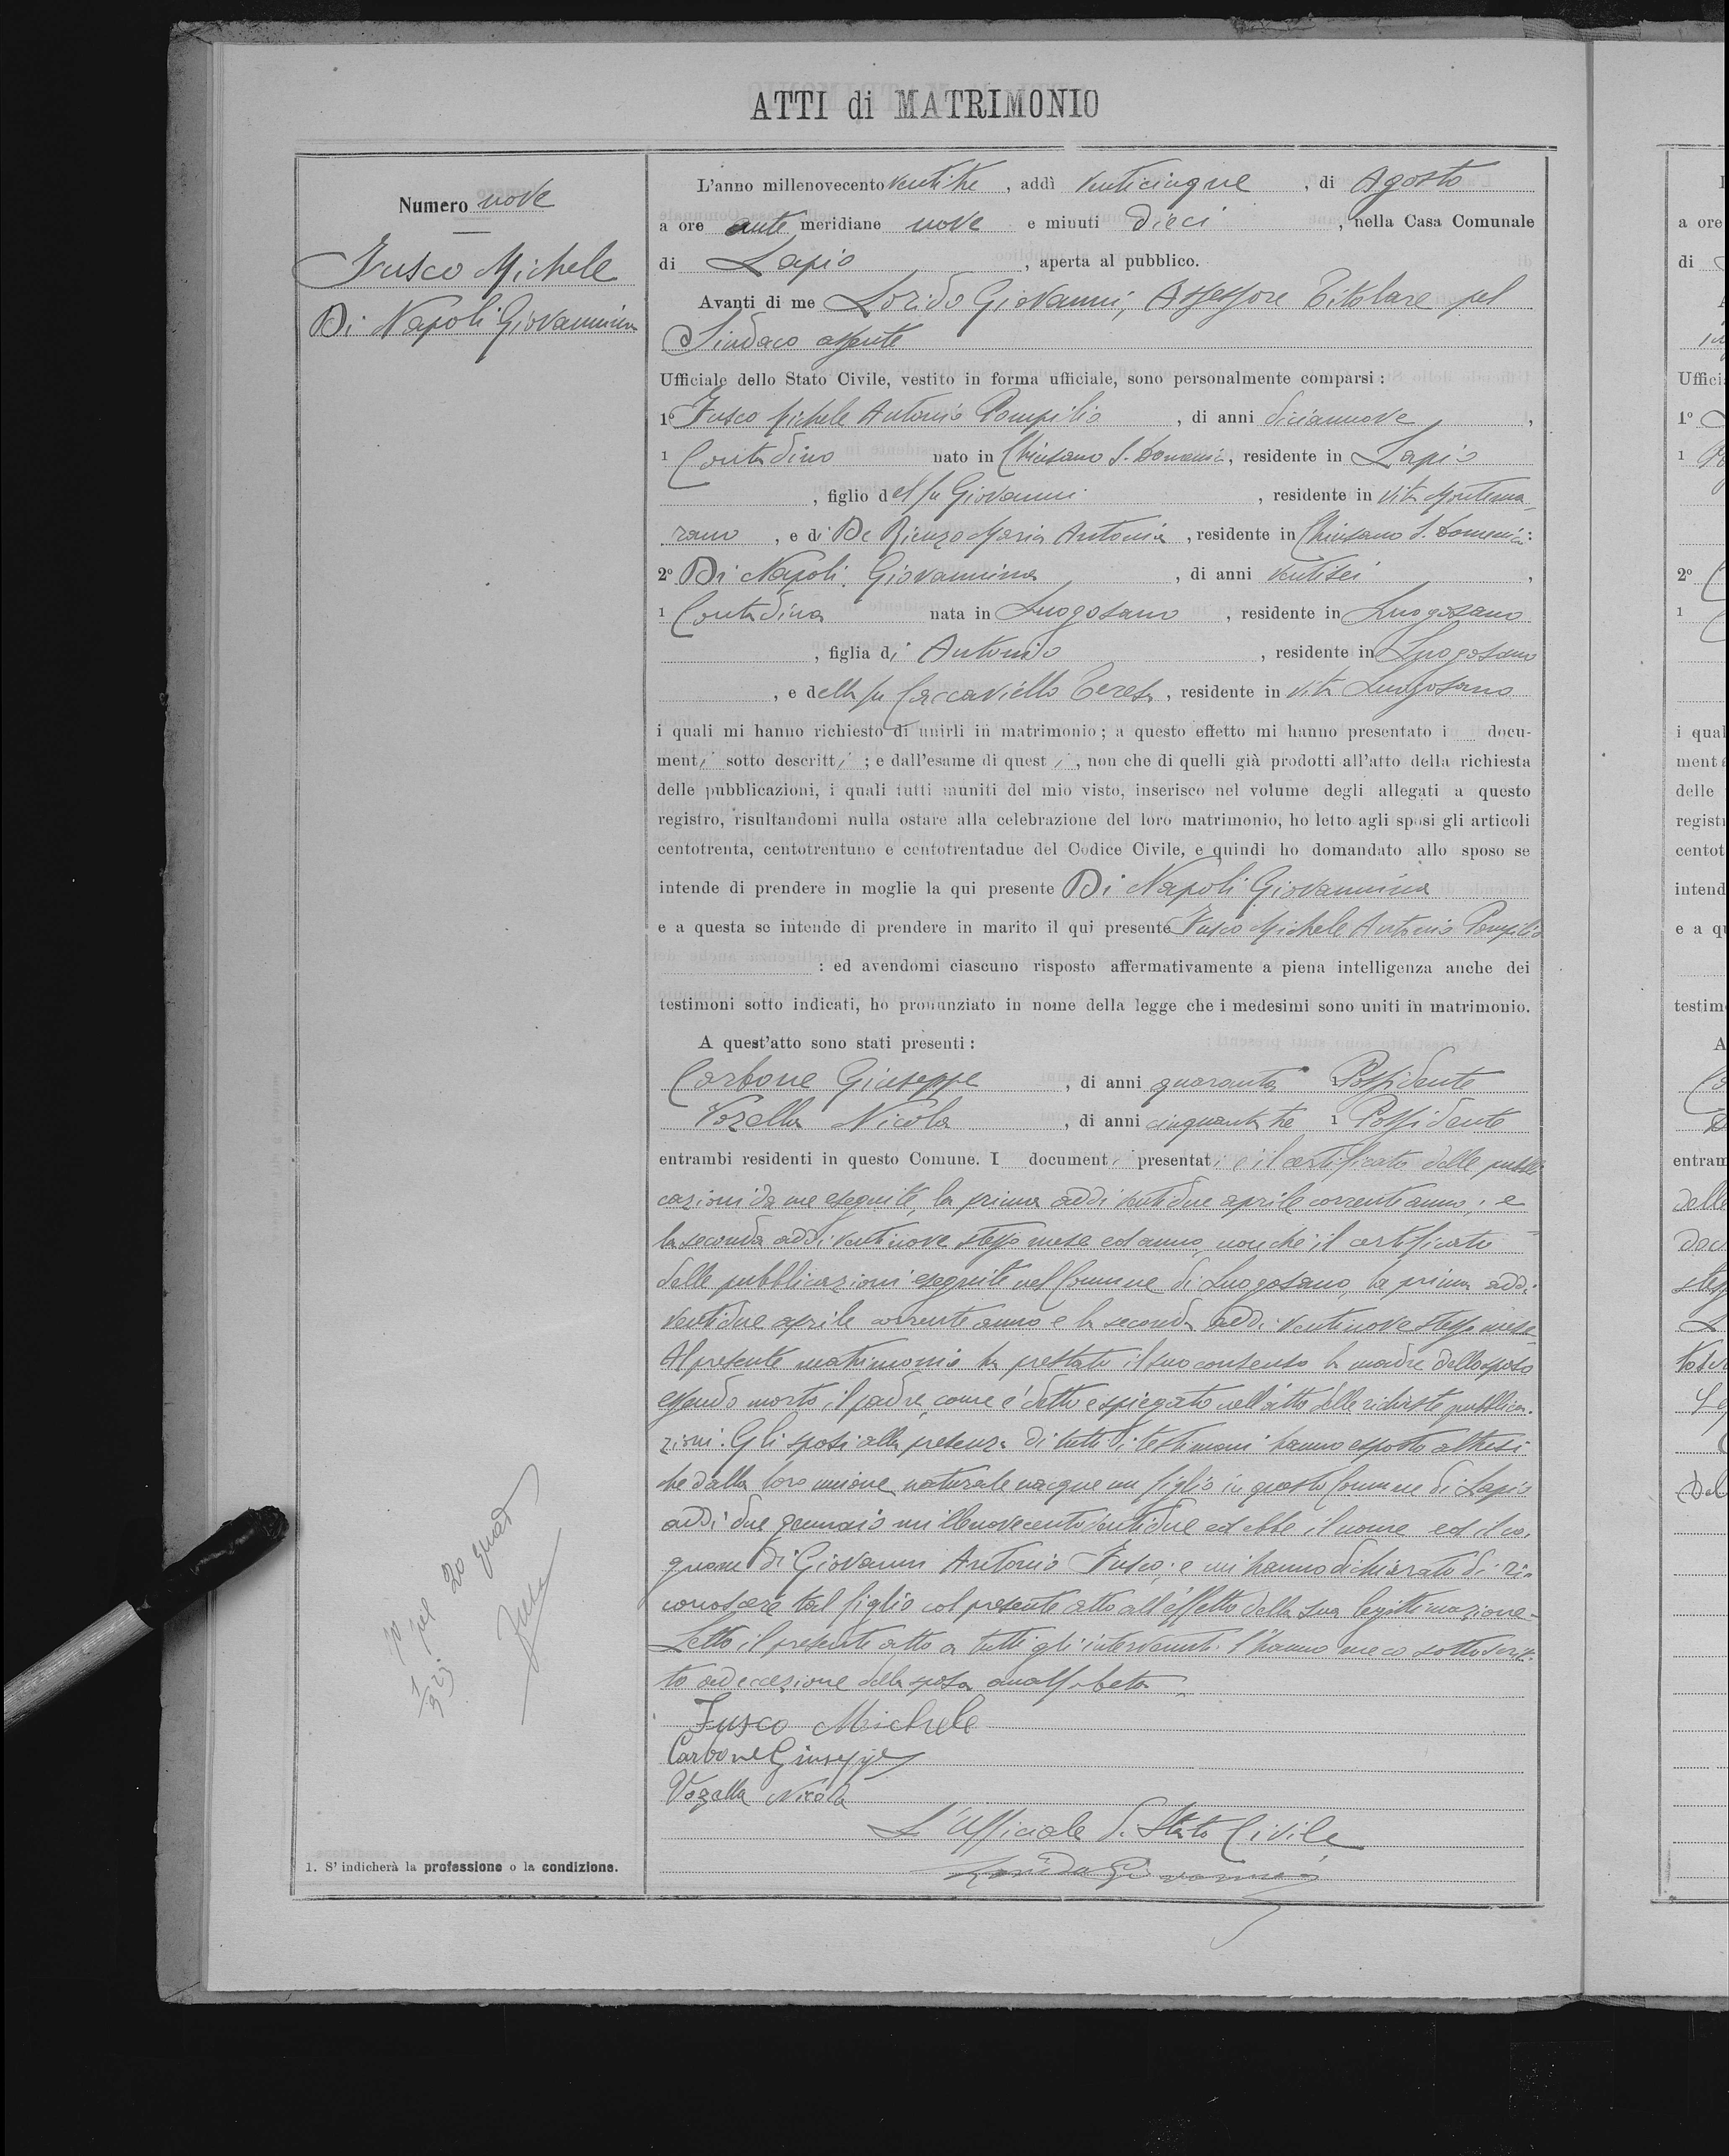 ATTI di MATRIMONIO
Numero nove
Fusco Michele
Di Napoli Giovannina
L'anno millenovecento ventitre, addì venticinque, di Agosto
a ore ante meridiane nove e minuti dieci, nella Casa Comunale
di Lapio, aperta al pubblico.
Avanti di me Lorido Giovanni, Assessore Titolare pel
Sindaco assente
Ufficiale dello Stato Civile, vestito in forma ufficiale, sono personalmente comparsi:
1º Fusco Michele Antonio Pompilio, di anni diciannove,
1 Contadino nato in Chiusano S. Domenico, residente in Lapio
, figlio del fu Giovanni, residente in vita Montema-
rano, e di De Rienzo Maria Antonia, residente in Chiusano S. Domenico:
2º Di Napoli Giovannina, di anni ventisei,
1 Contadina nata in Luogosano, residente in Luogosano
, figlia di Antonio, residente in Luogosano
, e della fu Caccaviello Teresa, residente in vita Luogosano
i quali mi hanno richiesto di unirli in matrimonio; a questo effetto mi hanno presentato i docu-
menti sotto descritti; e dall'esame di questi, non che di quelli già prodotti all'atto della richiesta
delle pubblicazioni, i quali tutti muniti del mio visto, inserisco nel volume degli allegati a questo
registro, risultandomi nulla ostare alla celebrazione del loro matrimonio, ho letto agli sposi gli articoli
centotrenta, centotrentuno e centotrentadue del Codice Civile, e quindi ho domandato allo sposo se
intende di prendere in moglie la qui presente Di Napoli Giovannina
e a questa se intende di prendere in marito il qui presente Fusco Michele Antonio Pompilio
: ed avendomi ciascuno risposto affermativamente a piena intelligenza anche dei
testimoni sotto indicati, ho pronunziato in nome della legge che i medesimi sono uniti in matrimonio.
A quest'atto sono stati presenti:
Carbone Giuseppe, di anni quaranta Possidente
Vozella Nicola, di anni cinquantatre 1 Possidente
entrambi residenti in questo Comune. I documenti presentati è il certificato delle pubbli
cazioni da me eseguite, la prima addi ventidue aprile corrente anno, e
la seconda addi ventinove stesso mese ed anno, nonchè il certificato
delle pubblicazioni eseguite nel Comune di Luogosano, la prima addi
ventidue aprile corrente anno e la seconda addi ventinove stesso mese
Al presente matrimonio ha prestato il suo consenso la madre dello sposo
essendo morto il padre, come è detto e spiegato nell'atto delle richieste pubblica-
zioni. Gli sposi alla presenza di tutti i testimoni hanno esposto altresi
che dalla loro unione naturale nacque un figlio in questo Comune di Lapio
addi due gennaio millenovecentoventidue ed ebbe il nome ed il co-
gnome di Giovanni Antonio Fusco; e mi hanno dichiarato di ri-
conoscere tal figlio col presente atto all'effetto della sua legittimazione-
Letto il presente atto a tutti gli intervenuti l'hanno meco sottoscrit-
to ad eccezione della sposa analfabeta.
Fusco Michele
Carbone Giuseppe
Vozella Nicola
L'Ufficiale S. Stato Civile
Lorido Giovanni
1. S'indicherà la professione o la condizione.
a ore
di
Uffici
1º
1
2º
1
i qual
ment
delle
regist
centot
intend
e a q
testim
A
entram